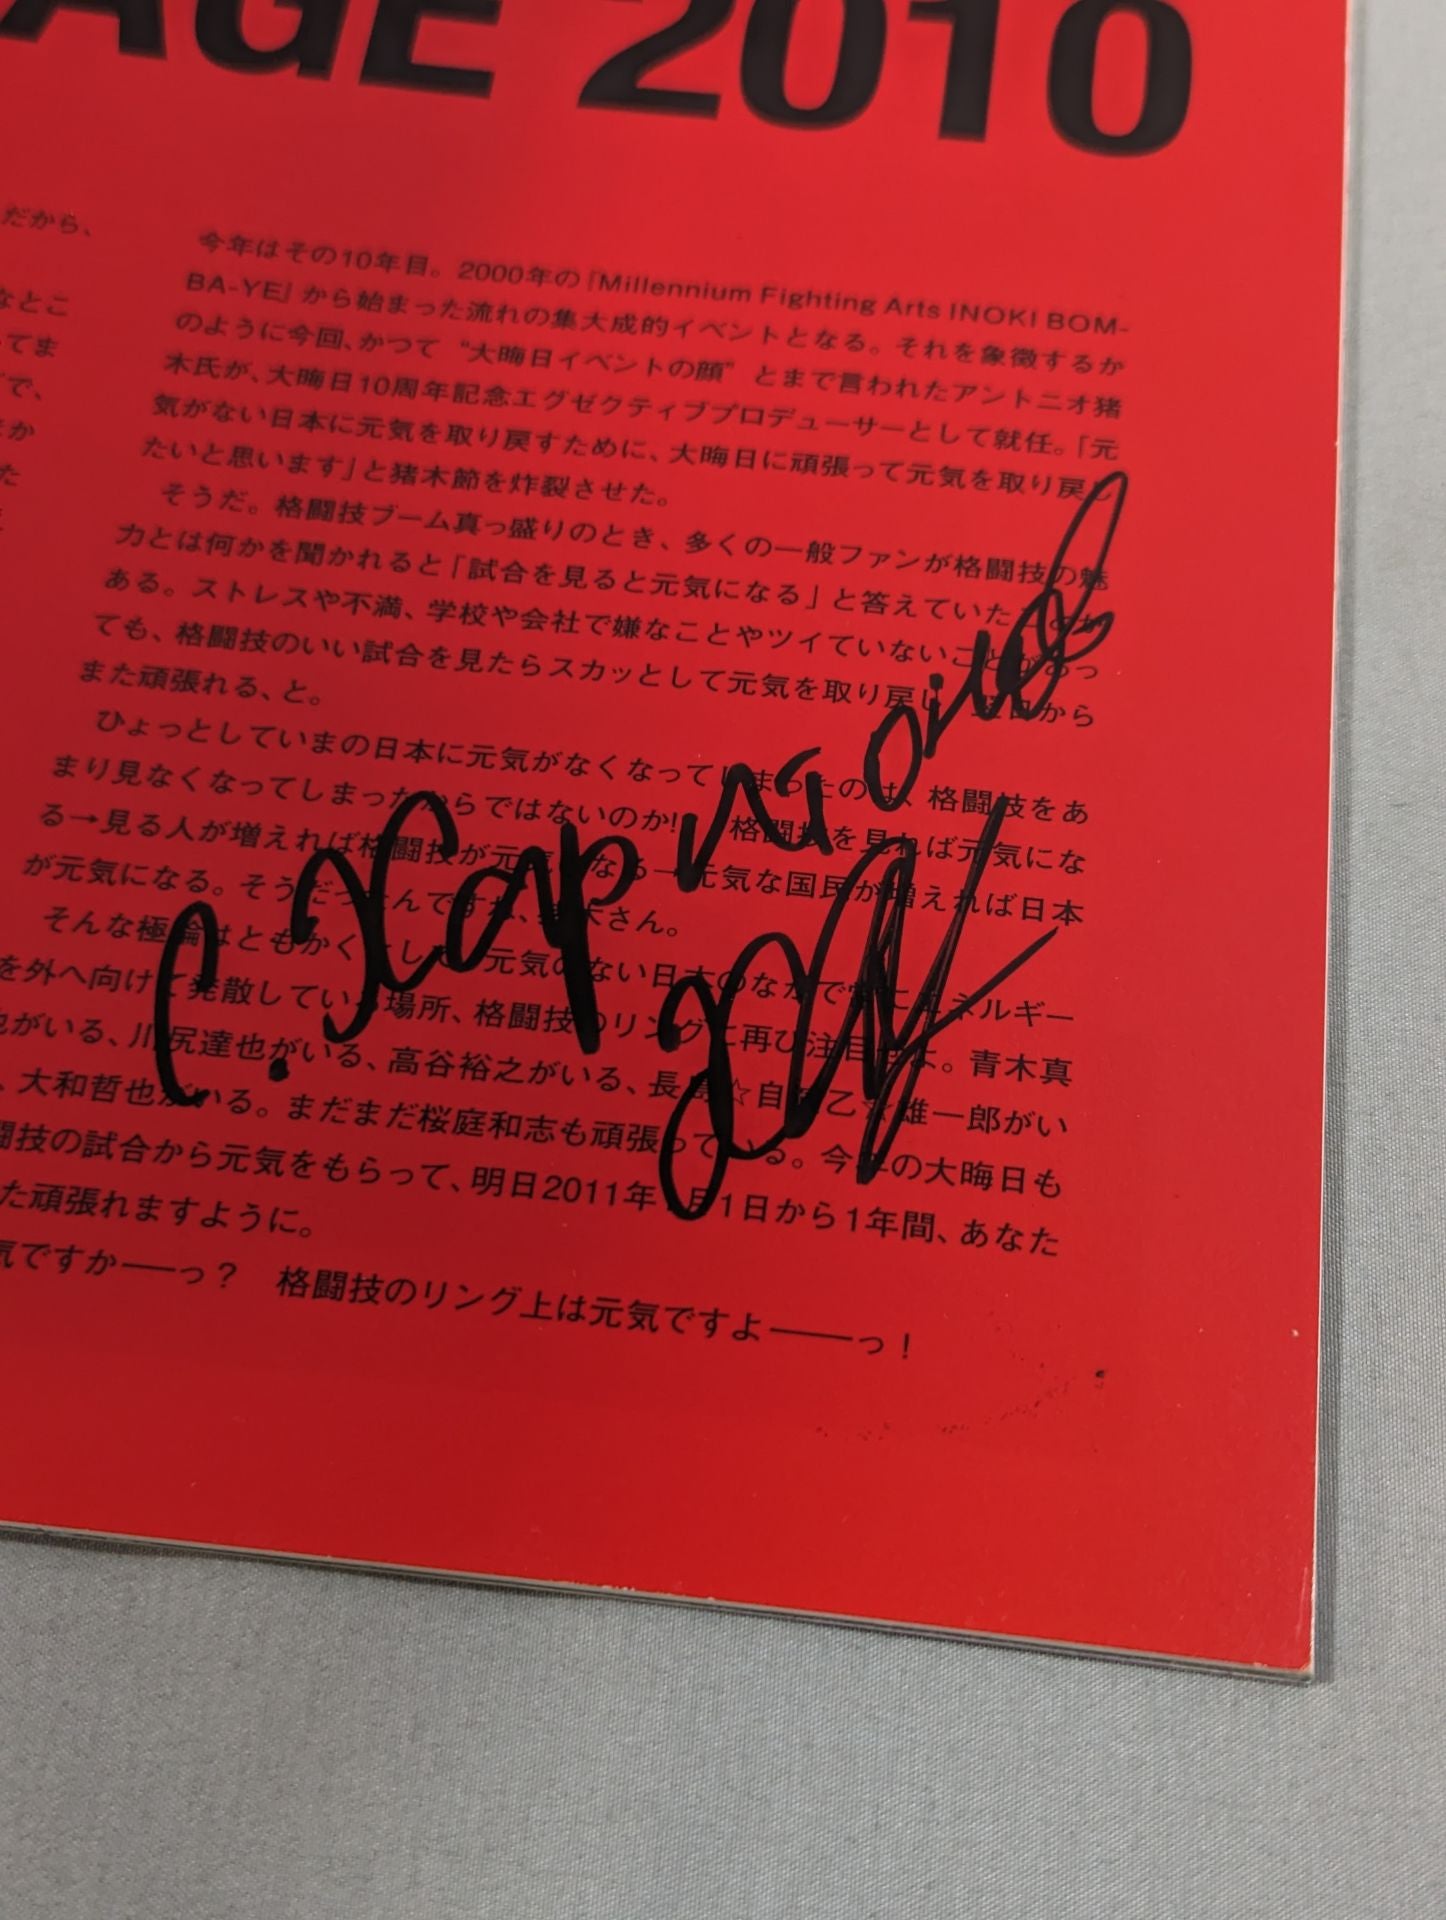 AGE 2010
だから、
なとこ
ってま
で、
か
た
今年はその10年目。2000年の『Millennium Fighting Arts INOKI BOM-
BA-YE』から始まった流れの集大成的イベントとなる。それを象徴するか
のように今回、かつて“大晦日イベントの顔”とまで言われたアントニオ猪
木氏が、大晦日10周年記念エグゼクティブプロデューサーとして就任。「元
気がない日本に元気を取り戻すために、大晦日に頑張って元気を取り戻し
たいと思います」と猪木節を炸裂させた。
そうだ。格闘技ブーム真っ盛りのとき、多くの一般ファンが格闘技の魅
力とは何かを聞かれると「試合を見ると元気になる」と答えていた
ある。ストレスや不満、学校や会社で嫌なことやツイていないことがあっ
ても、格闘技のいい試合を見たらスカッとして元気を取り戻し 翌日から
また頑張れる、と。
ひょっとしていまの日本に元気がなくなってしまったのは、格闘技をあ
まり見なくなってしまったからではないのか! 格闘技を見れば元気にな
る→見る人が増えれば格闘技が元気になる→元気な国民が増えれば日本
が元気になる。そうだったんですね、猪木さん。
そんな極論はともかくとして、元気のない日本のなかで常にエネルギー
を外へ向けて発散している場所、格闘技のリングに再び注目せよ。青木真
也がいる、川尻達也がいる、高谷裕之がいる、長島☆自演乙☆雄一郎がい
、大和哲也がいる。まだまだ桜庭和志も頑張っている。今年の大晦日も
闘技の試合から元気をもらって、明日2011年1月1日から1年間、あなた
た頑張れますように。
気ですかーーっ？ 格闘技のリング上は元気ですよーーーっ！
С. Харитонов